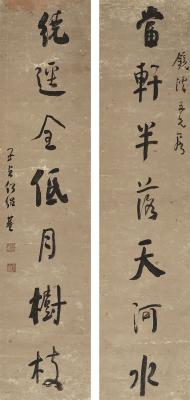 當軒半落天河水
繞逕全低月樹枝
子貞何紹基